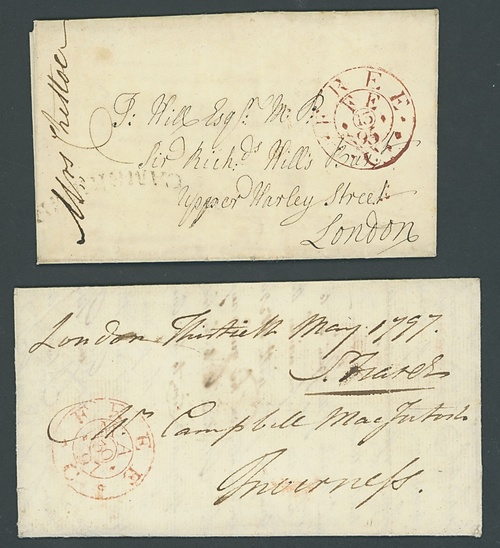 Mrs
J: Hill Esqr. M: P:
Sir Richds. Hill's Bart
Upper Harley Street
London
FREE
FE
13
95
London Thirtieth May. 1797.
S. Fraser
Mr Campbell MacIntosh
Inverness.
FREE